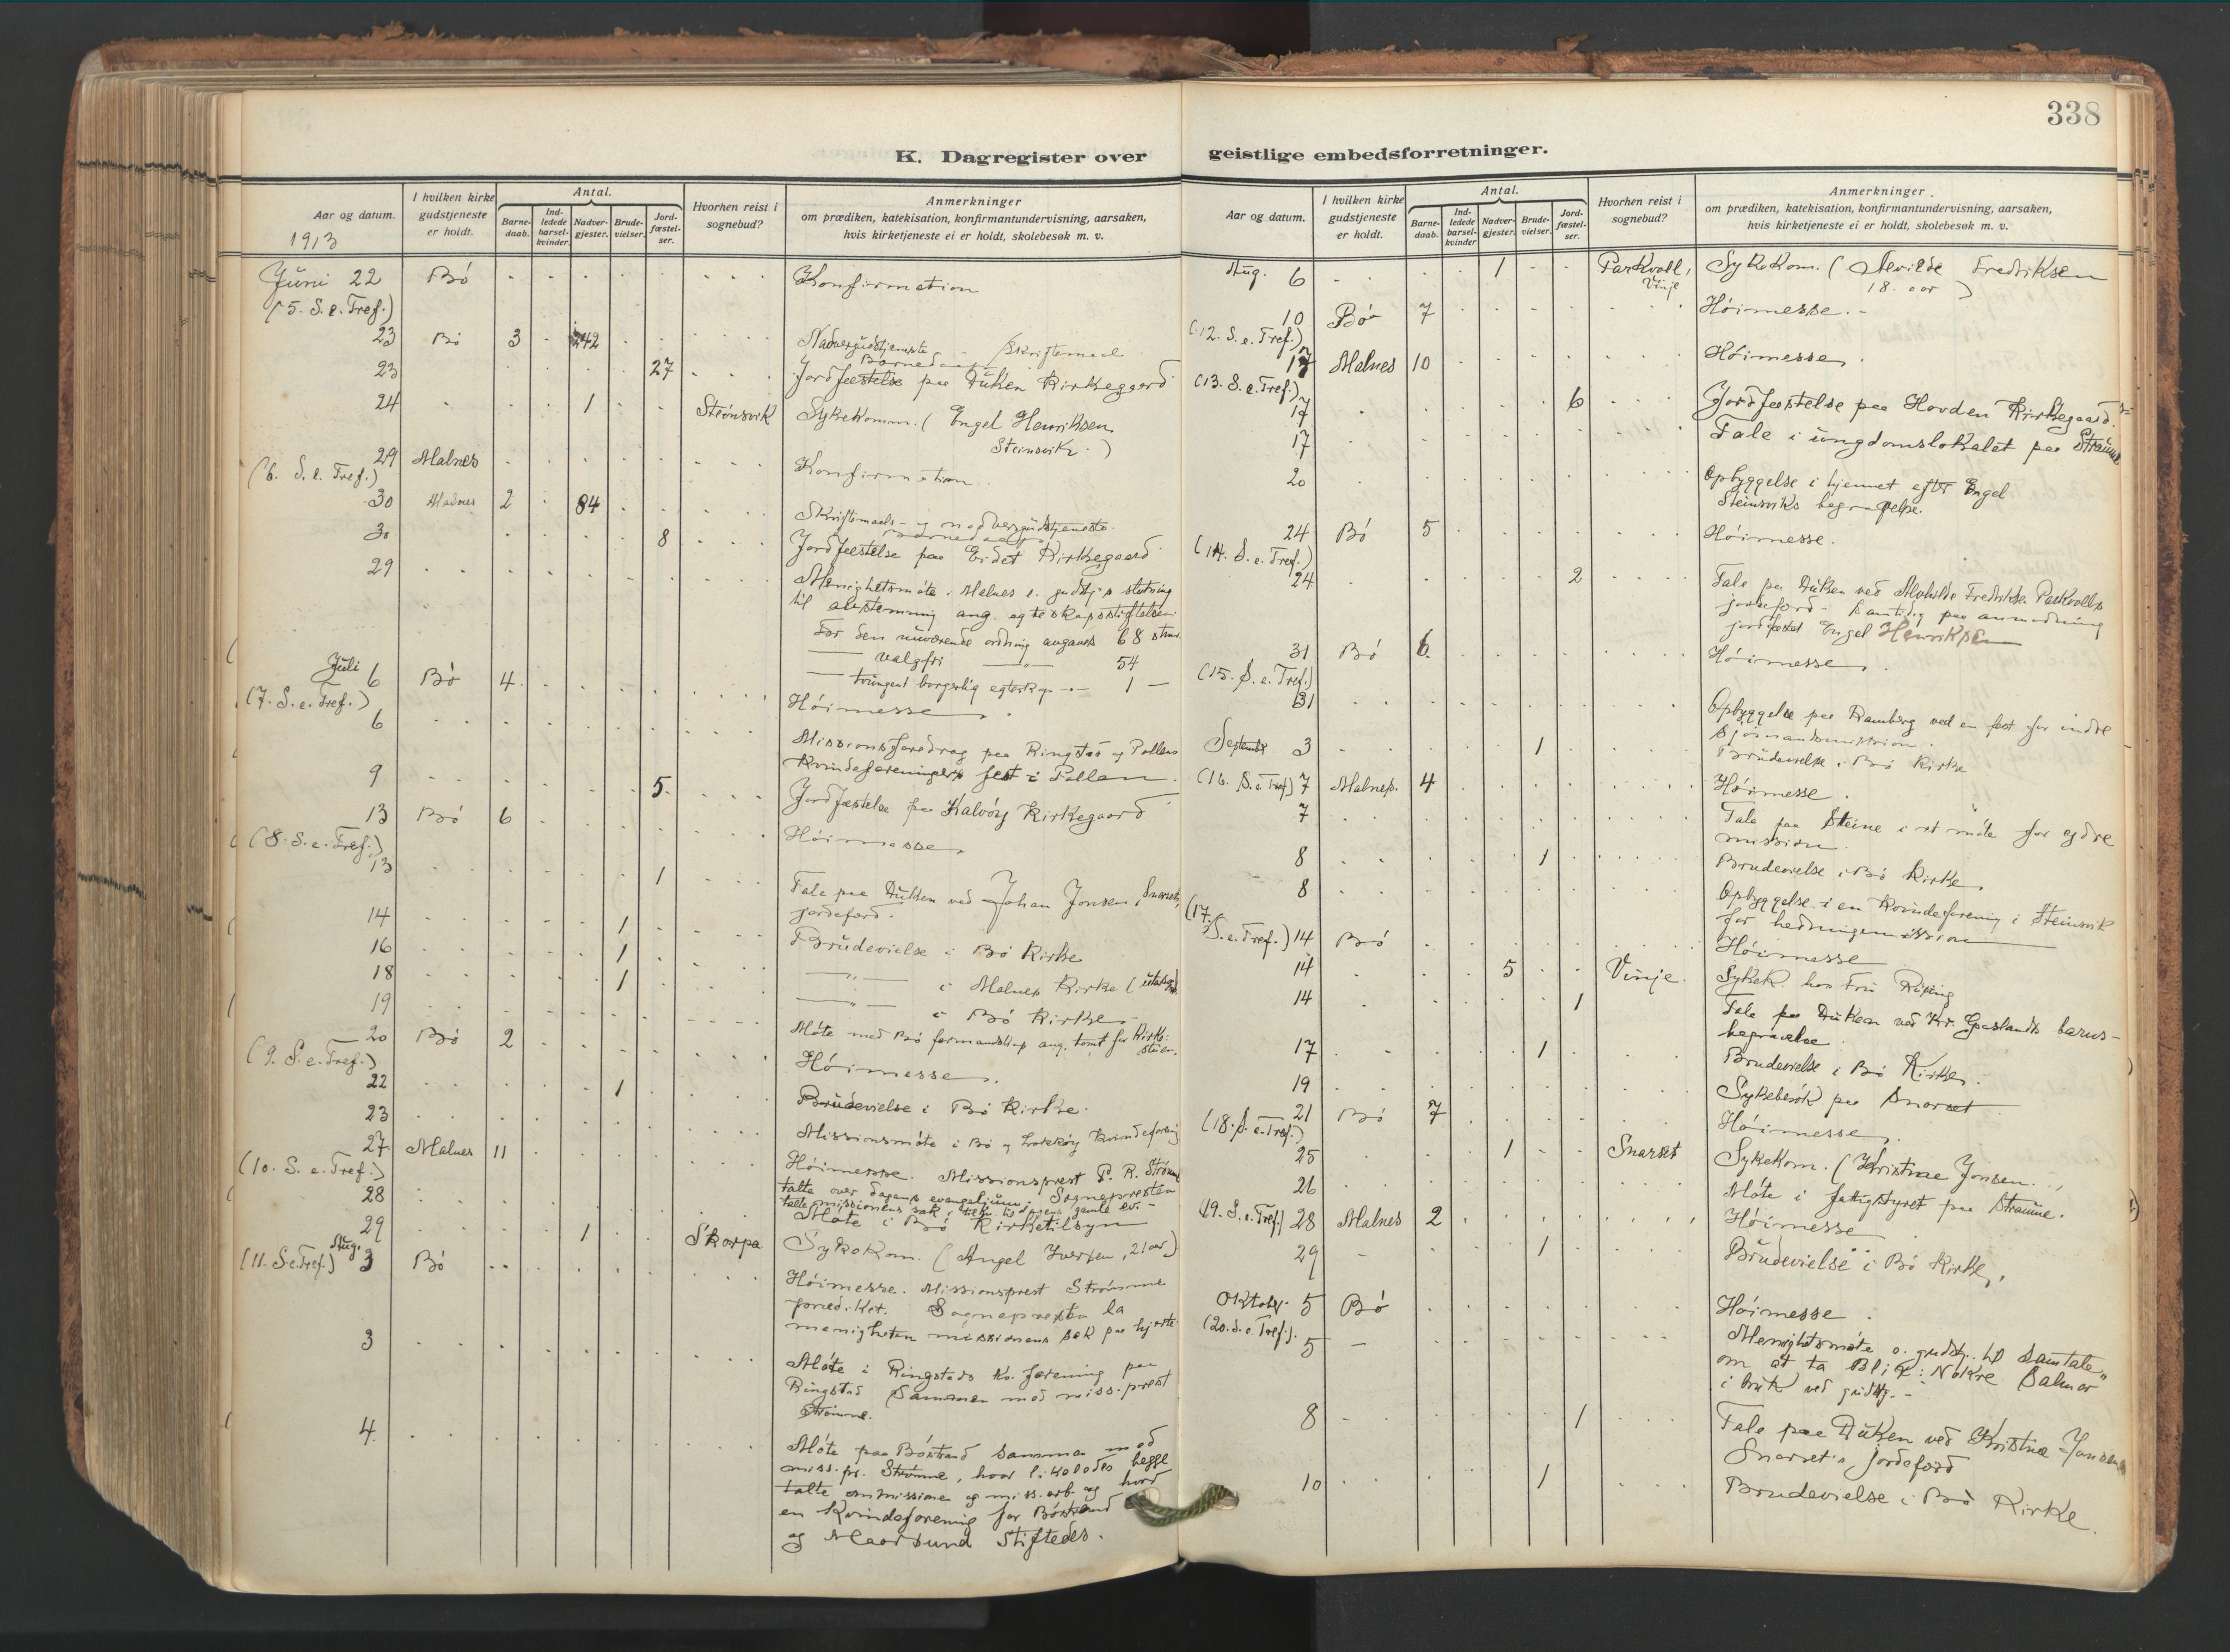 338
K. Dagregister over geistlige embedsforretninger.
Aar og datum.
1913
I hvilken kirke
gudstjeneste
er holdt.
Antal.
Barne-
daab.
Ind-
ledede
barsel-
kvinder.
Nadver-
gjester.
Brude-
vielser.
Jord-
fæstel-
ser.
Hvorhen reist i
sognebud?
Anmerkninger
om prædiken, katekisation, konfirmantundervisning, aarsaken,
hvis kirketjeneste ei er holdt, skolebesøk m. v.
Juni 22 Bó Konfirmation
(5. S. e. Tref.)
23 Bó 3 242 Nadvergudstjeneste Skriftemaal
Barnedaab
23 27 Jordfæstelse paa Düken Kirkegaard
24 1 Steinsvik Sykekomm. (Engel Henriksen
Steinsvik.)
29 Malnes Konfirmation
(6. S. e. Tref.)
30 Malnes 2 84 Skriftemaals- og nadvergudstjeneste.
Barnedaab
30 8 Jordfæstelse paa Eidet Kirkegaard
29 Menighetsmóte i Malnes e. gudstj's slutning
til avstemning ang. egteskapsstiftelsen.
For den nuværende ordning avgaves 68 stm.
— valgfri — 54
— tvungent borgerlig egteskap — 1 —
Juli 6 Bó 4 Hóimesse.
(7. S. e. Tref.)
6 Missionsforedrag paa Ringstad og Pollens
Kvindeforeningers fest i Pollen.
9 5 Jordfæstelse paa Kalvóy Kirkegaard
13 Bó 6 Hóimesse.
(8. S. e. Tref.)
13 1 Tale paa Düken ved Johan Jonsen, Snarset,
jordeferd.
14 1 Brüdevielse i Bó Kirke
16 1 —"— i Malnes Kirke
18 1 —"— i Bó Kirke.
19 Móte med Bó formandskap ang. tomt for Kirke-
stuen.
20 Bó 2 Hóimesse.
(9. S. e. Tref.)
22 1 Brüdevielse i Bó Kirke.
23 Missionsmóte i Bó og kvindeforening
27 Malnes 11 Hóimesse. Missionsprest P. R. Strömme
(10. S. e. Tref.)
talte over dagens evangelium. Sognepresten
talte missionens sak
28 Móte i Bó Kirketilsyn
29 1 Skorpa SykeKom. (Angel Iversen, 21 aar)
Aug.
(11. S. e. Tref.) 3 Bó Hóimesse. Missionsprest Strömme
prediket. Sognepresten la
menigheten missionens sak paa hjerte.
3 Móte i Ringstads kv. forening paa
Ringstad sammen med miss. prest
Strömme.
4 Móte paa Bóstrand sammen med
miss. pr. Strömme, hvor likeledes begge
talte om missionen og miss. arb. og hvor
en Kvindeforening for Bóstrand
og Maarsund stiftedes.
Aar og datum.
I hvilken kirke
gudstjeneste
er holdt.
Antal.
Barne-
daab.
Ind-
ledede
barsel-
kvinder
Nadver-
gjester.
Brude-
vielser.
Jord-
fæstel-
ser.
Hvorhen reist i
sognebud?
Anmerkninger.
om prædiken, katekisation, konfirmantundervisning, aarsaken,
hvis kirketjeneste ei er holdt, skolebesøk m. v.
Aug. 6 1 Parkvoll, Vinje SykeKom. (Fredriksen
18 aar)
10 Bó 7 Hóimesse.
(12. S. e. Tref.)
17 Malnes 10 Hóimesse.
(13. S. e. Tref.)
17 6 Jordfæstelse paa Hovden Kirkegaard.
17 Tale i üngdomslokalet paa Straüme
20 Opbyggelse i hjemmet efter Engel
Steinsviks begravelse.
24 Bó 5 Hóimesse.
(14. S. e. Tref.)
24 2 Tale paa Düken ved Fredriksen Parkvolls
jordeferd - samtidig paa anmodning
jordfæstet Engel Henriksen
31 Bó 6. Hóimesse.
(15. S. e. Tref.)
31 Opbyggelse paa Ramberg ved en fest for indre
sjómandsmission.
September 3 1 Brüdevielse i Bó Kirke
(16. S. e. Tref.) 7 Malnes. 4 Hóimesse.
7 Tale paa Steine i et móte for ydre
mission.
8 1 Brudevielse i Bó Kirke.
8 Opbyggelse i en Kvindeforening i Steinsvik
for hedningemission
(17.
S. e. Tref.) 14 Bó Hóimesse
14 5 Vinje. Sykek. hos Frü
14 1 Tale paa Düken ved Kr. barns-
begravelse
17 1 Brudevielse i Bó Kirke.
19 Sykebesök paa Snarset
21 Bó 7 Hóimesse.
(18. S. e. Tref.)
25 1 Snarset SykeKom. (Kristine Jonsen.
26 Móte i fattigstyret paa Straume.
(19. S. e. Tref.) 28 Malnes 2 Hóimesse
29 1 Brüdevielse i Bó Kirke.
Oktober 5 Bó Hóimesse.
(20. S. e. Tref.).
5 Menighetsmóte e. gudstj. til samtale
om at ta Blix: Nokre Salmar"
i bruk ved gudstj. -
8 1 Tale paa Düken ved Kristine Jonsen
Snarset's jordeferd
10 1 Brudevielse i Bó Kirke.